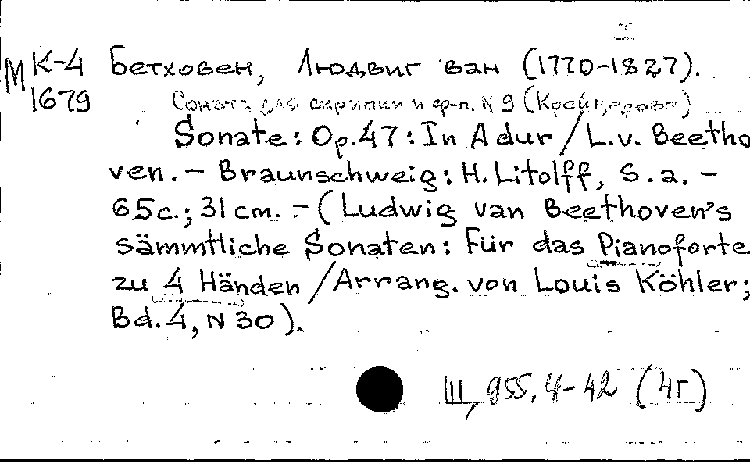 М К-4 Бетховен, Людвиг ван (1770-1827).
1679
Соната для скрипки и ф-п. N 9 (Крейцерова)
Sonate: Op. 47: In A dur / L. v. Beetho
ven. – Braunschweig: H. Litolff, s. a. –
65 с.; 31 cm. – (Ludwig van Beethoven's
sämmtliche Sonaten: Für das Pianoforte
zu 4 Händen / Arrang. von Louis Köhler;
Bd. 4, N 30).
III, 955, 4-42 (4г)